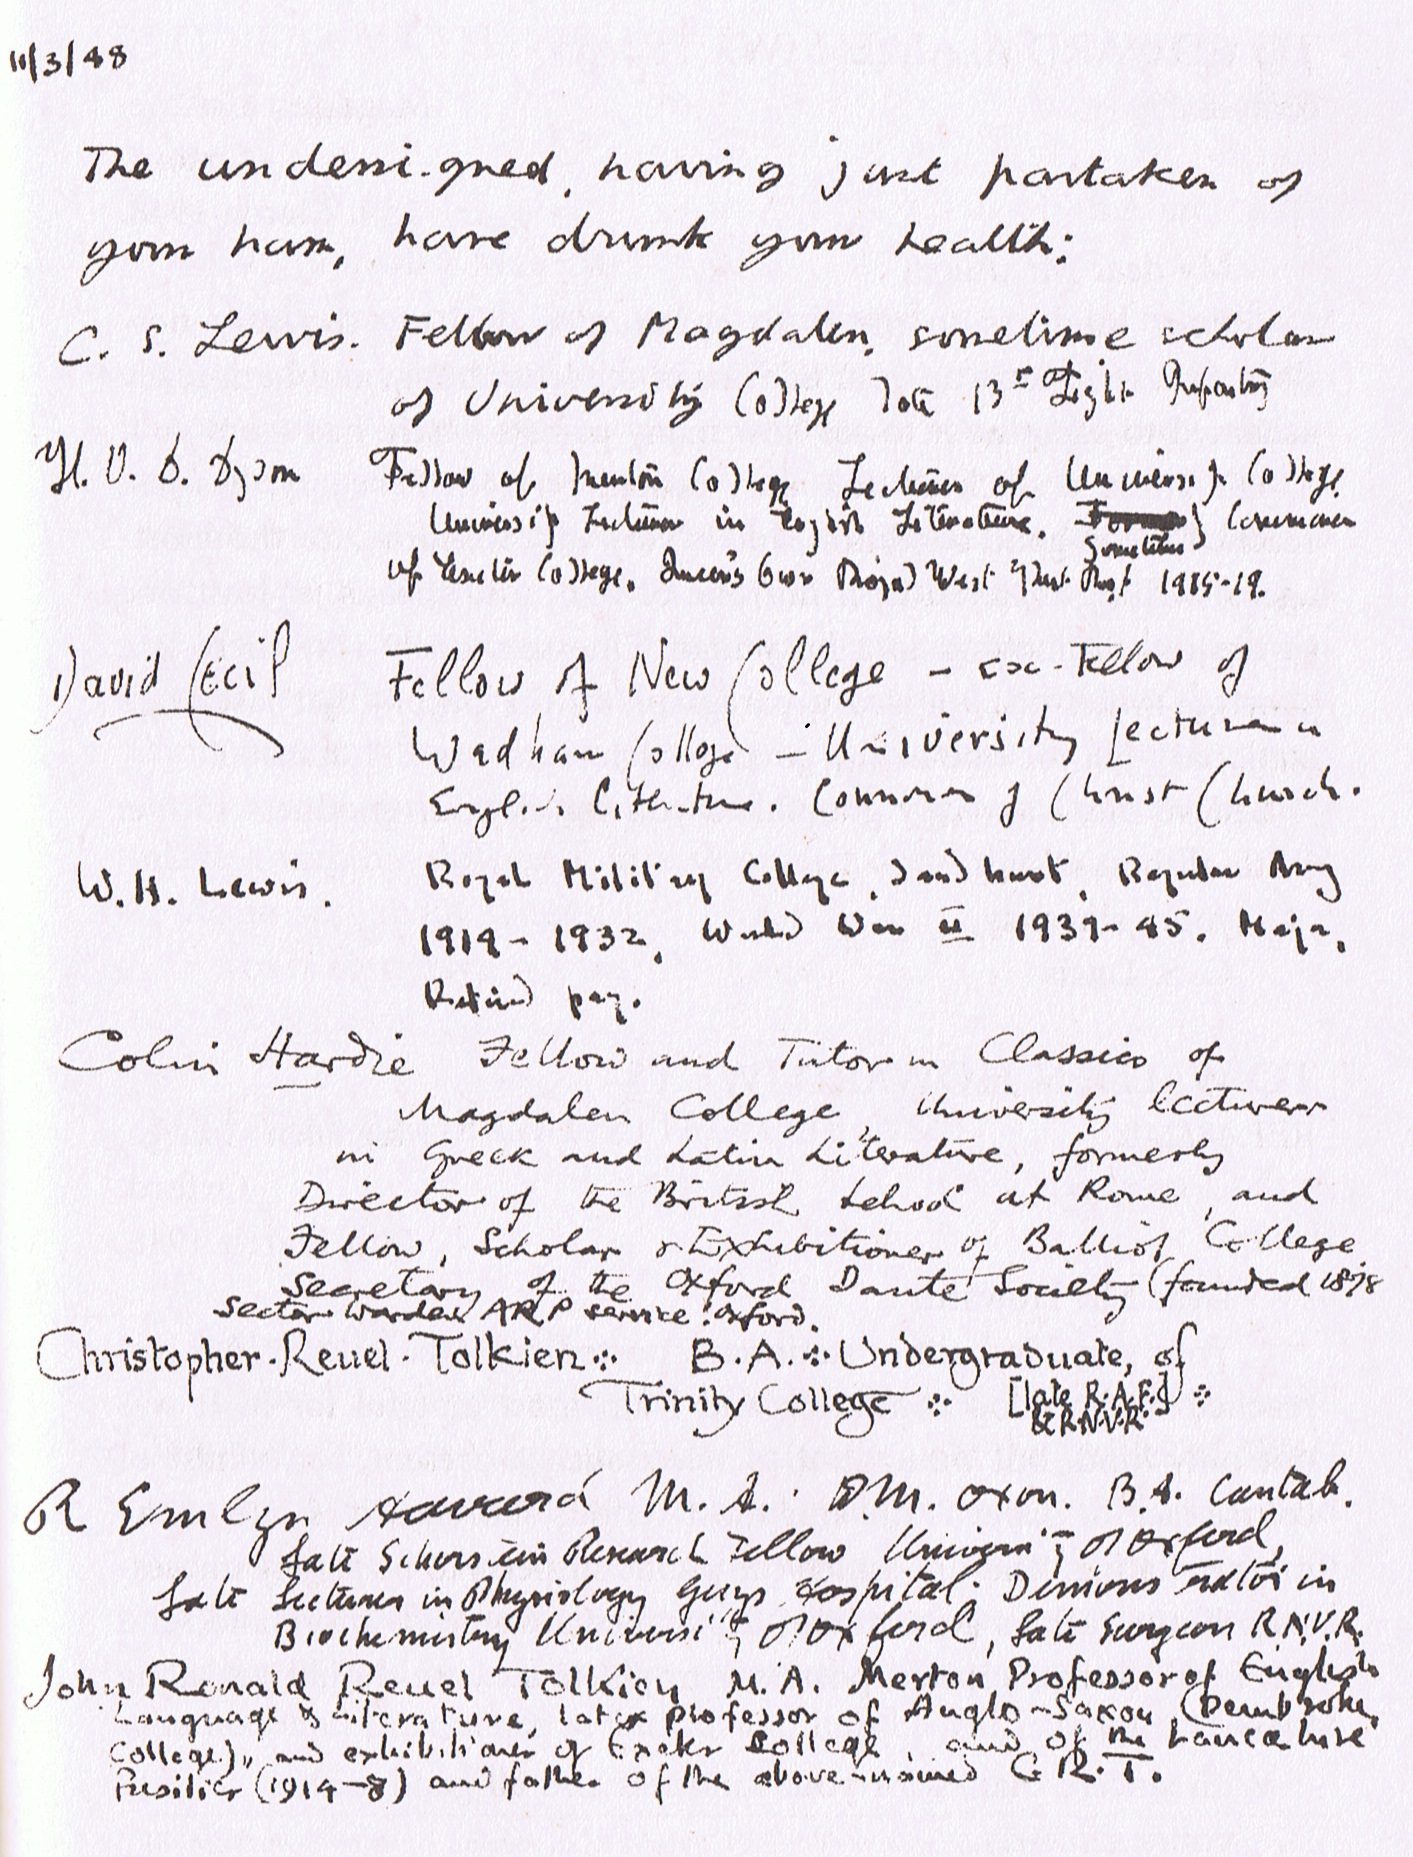 11/3/48
The undersigned, having just partaken of
your ham, have drunk your health:
C. S. Lewis. Fellow of Magdalen, sometime scholar
of University College late 13th Light Infantry
H. V. D. Dyson Fellow of Merton College Lecturer of University College
University Lecturer in English Literature. Sometime Commoner
of Exeter College. Queen's Own Royal West Kent Regt 1915-19.
David Cecil Fellow of New College – ex-Fellow of
Wadham College – University Lecturer in
English Literature. Commoner of Christ Church.
W.H. Lewis. Royal Military College, Sandhurst, Regular Army
1914-1932, World War II 1939-45. Major,
Retired pay.
Colin Hardie Fellow and Tutor in Classics of
Magdalen College, University lecturer
in Greek and Latin Literature, formerly
Director of the British School at Rome, and
Fellow, Scholar & Exhibitioner of Balliol College
Secretary of the Oxford Dante Society (founded 1878
Sector Warden ARP service: Oxford.
Christopher·Reuel·Tolkien B.A. Undergraduate, of
Trinity College [late R.A.F.]
& R.N.V.R.
R Emlyn Havard M.A. D.M. Oxon. B.A. Cantab.
Late Schorstein Research Fellow University of Oxford,
Late Lecturer in Physiology Guys Hospital. Demonstrator in
Biochemistry University of Oxford, late Surgeon R.N.V.R.
John Ronald Reuel Tolkien M.A. Merton Professor of English
Language & Literature, late professor of Anglo-Saxon (Pembroke
College), and exhibitioner of Exeter College, and of the Lancashire
Fusiliers (1914-8) and father of the above-named C.R.T.